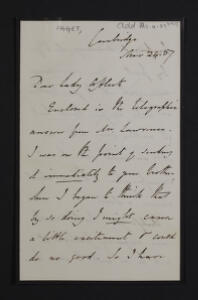 PAGET,
Add Ms.
Cambridge
Nov 24. 87
Dear Lady
Enclosed is the telegraphic
answer from Mr Lawrence.
I was on the point of sending
it immediately to your brother,
when I began to think that
by so doing I might cause
a little excitement & could
do no good. So I have